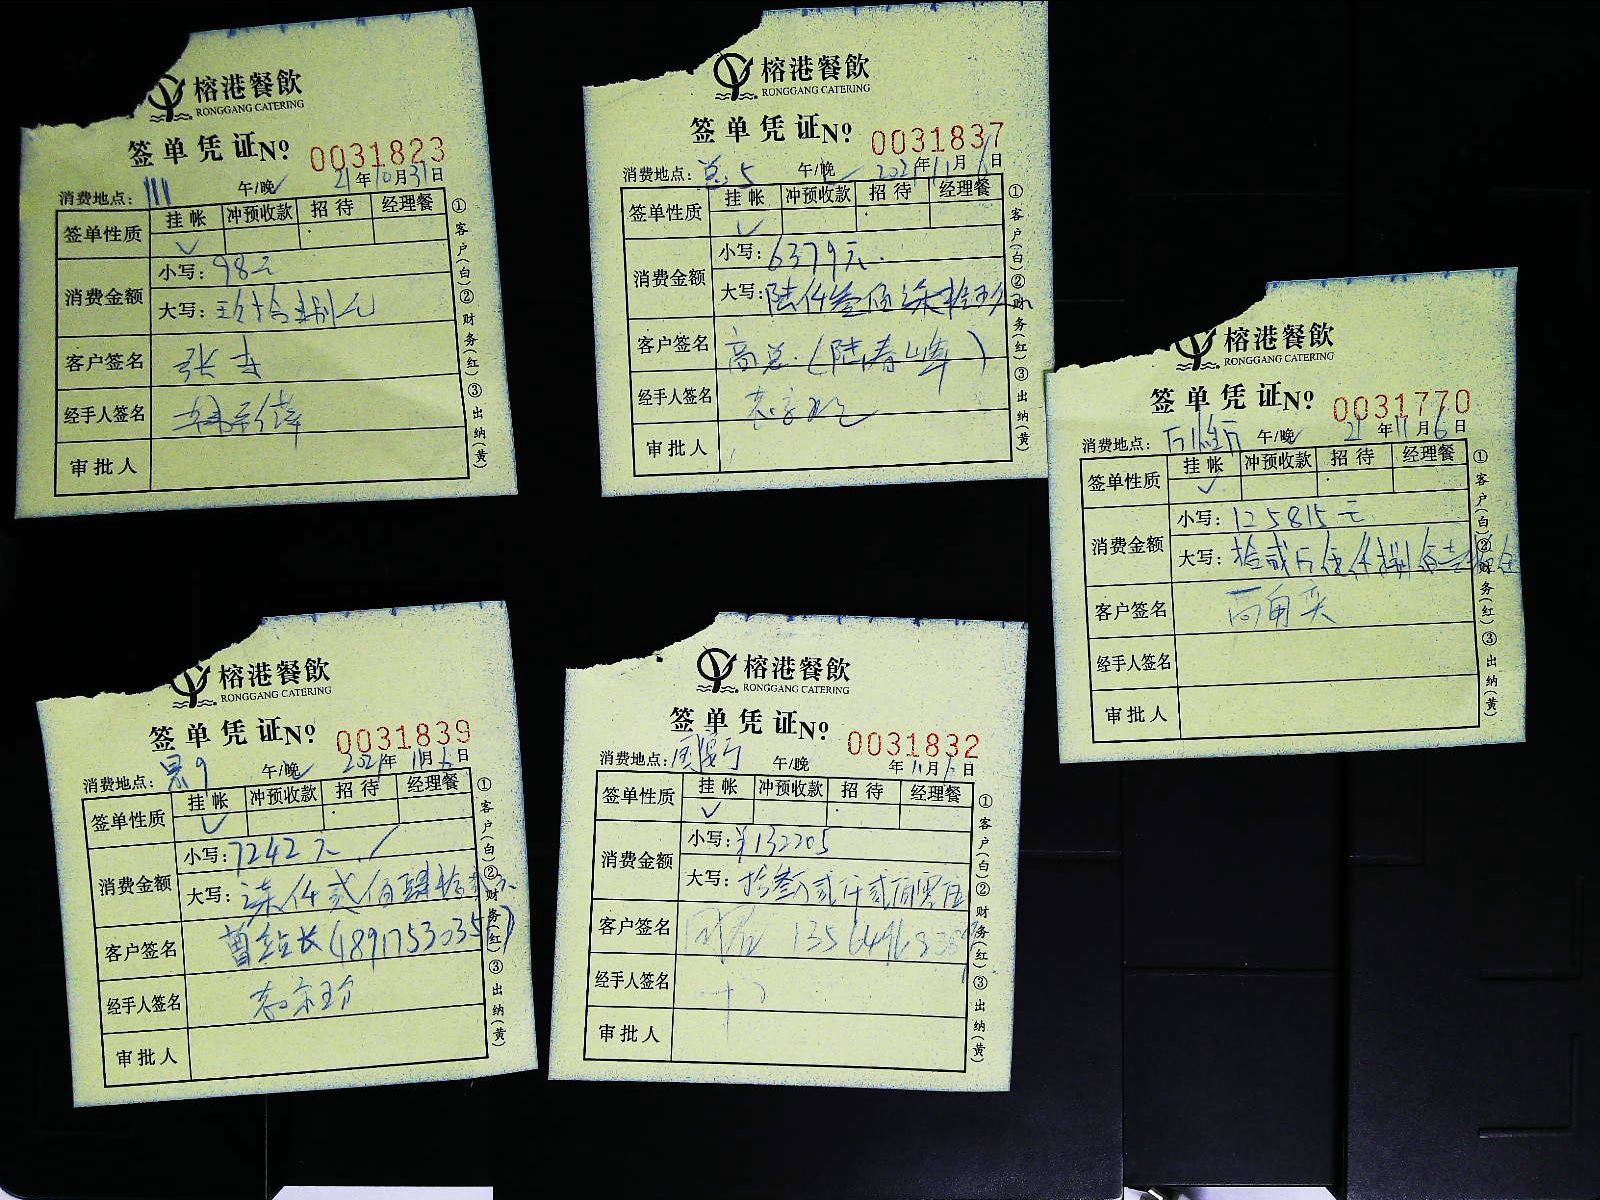 榕港餐飲
RONGGANG CATERING
签单凭证No 0031823
消费地点: 111 午/晚 21年10月31日
签单性质 挂帐 冲预收款 招待 经理餐
消费金额 小写: 98元
大写: 玖拾捌元
客户签名 张
经手人签名
审批人
①客户(白)②财务(红)③出纳(黄)
榕港餐飲
RONGGANG CATERING
签单凭证No 0031837
消费地点: 总5 午/晚 2021年11月6日
签单性质 挂帐 冲预收款 招待 经理餐
消费金额 小写: 6379元
大写: 陆仟叁佰柒拾玖
客户签名 高总.(陆春峰)
经手人签名
审批人
①客户(白)②财务(红)③出纳(黄)
榕港餐飲
RONGGANG CATERING
签单凭证No 0031770
消费地点: 午/晚 21年11月6日
签单性质 挂帐 冲预收款 招待 经理餐
消费金额 小写: 125815元
大写: 拾贰万伍仟捌佰壹拾伍
客户签名
经手人签名
审批人
①客户(白)②财务(红)③出纳(黄)
榕港餐飲
RONGGANG CATERING
签单凭证No 0031839
消费地点: 午/晚 2021年11月6日
签单性质 挂帐 冲预收款 招待 经理餐
消费金额 小写: 7242元
大写: 柒仟贰佰肆拾贰元
客户签名 曹站长(4891753035)
经手人签名
审批人
①客户(白)②财务(红)③出纳(黄)
榕港餐飲
RONGGANG CATERING
签单凭证No 0031832
消费地点: 午/晚 年11月6日
签单性质 挂帐 冲预收款 招待 经理餐
消费金额 小写: ¥132205
大写: 拾叁万贰仟贰佰零伍
客户签名
经手人签名
审批人
①客户(白)②财务(红)③出纳(黄)